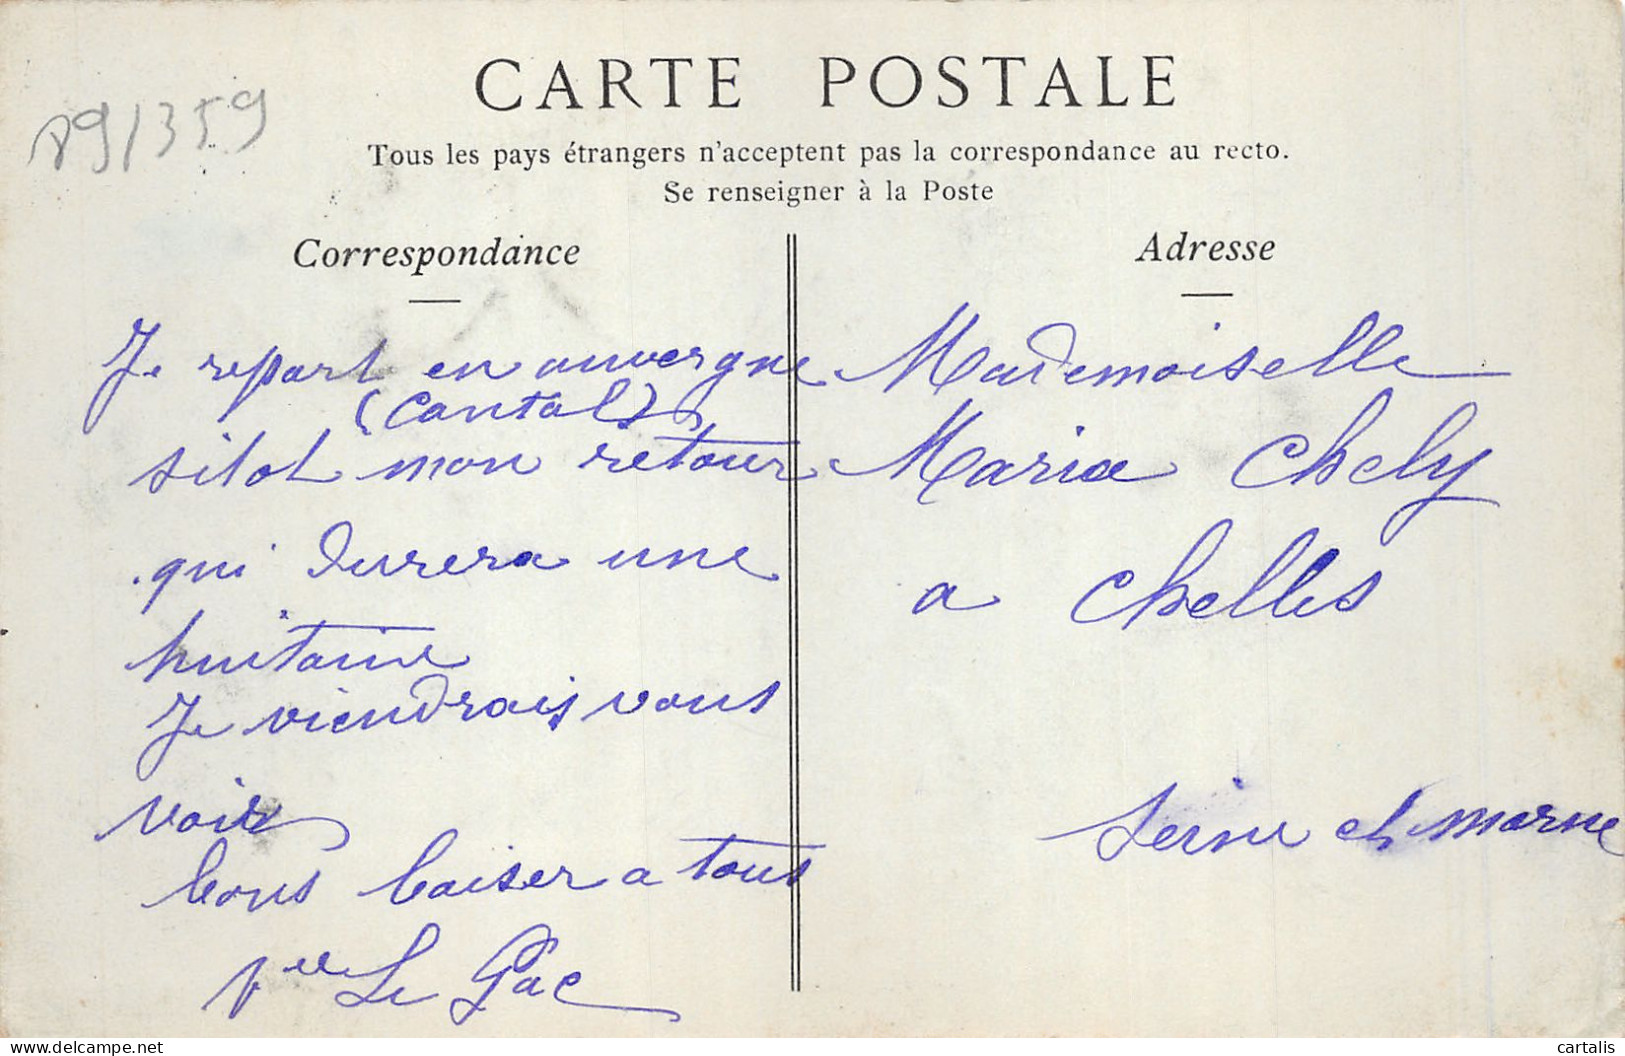 89/359
CARTE POSTALE
Tous les pays étrangers n'acceptent pas la correspondance au recto.
Se renseigner à la Poste
Correspondance
Je repart en auvergne
(Cantal)
sitot mon retour
qui durera une
huitaine
Je viendrais vous
voir
bons baiser a tous
Le Gac
Adresse
Mademoiselle
Maria Chely
a Chelles
Seine et marne
cartalis